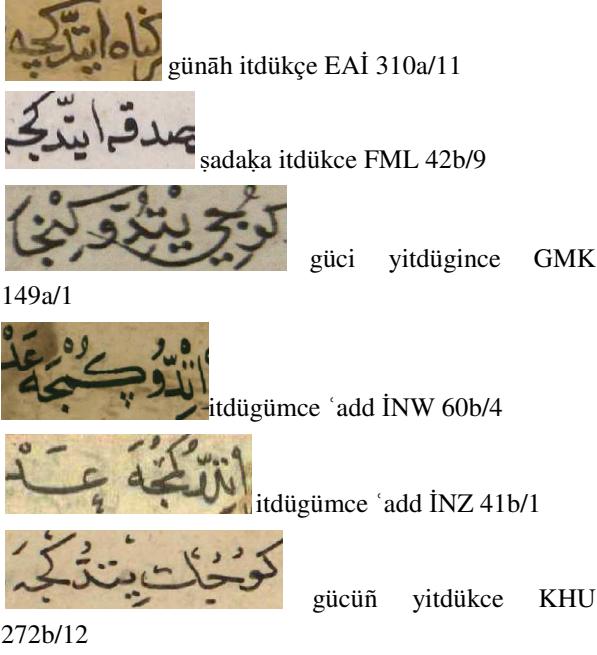 كناه ايتدّكچه günāh itdükçe EAİ 310a/11
صدقه ايتدّكجه ṣadaḳa itdükce FML 42b/9
كوجي يتدّوكنجا güci yitdügince GMK
149a/1
اتدّوكمجه عد itdügümce ʿadd İNW 60b/4
اتدّكمجه عد itdügümce ʿadd İNZ 41b/1
كوجك يتدّكجه gücüñ yitdükce KHU
272b/12